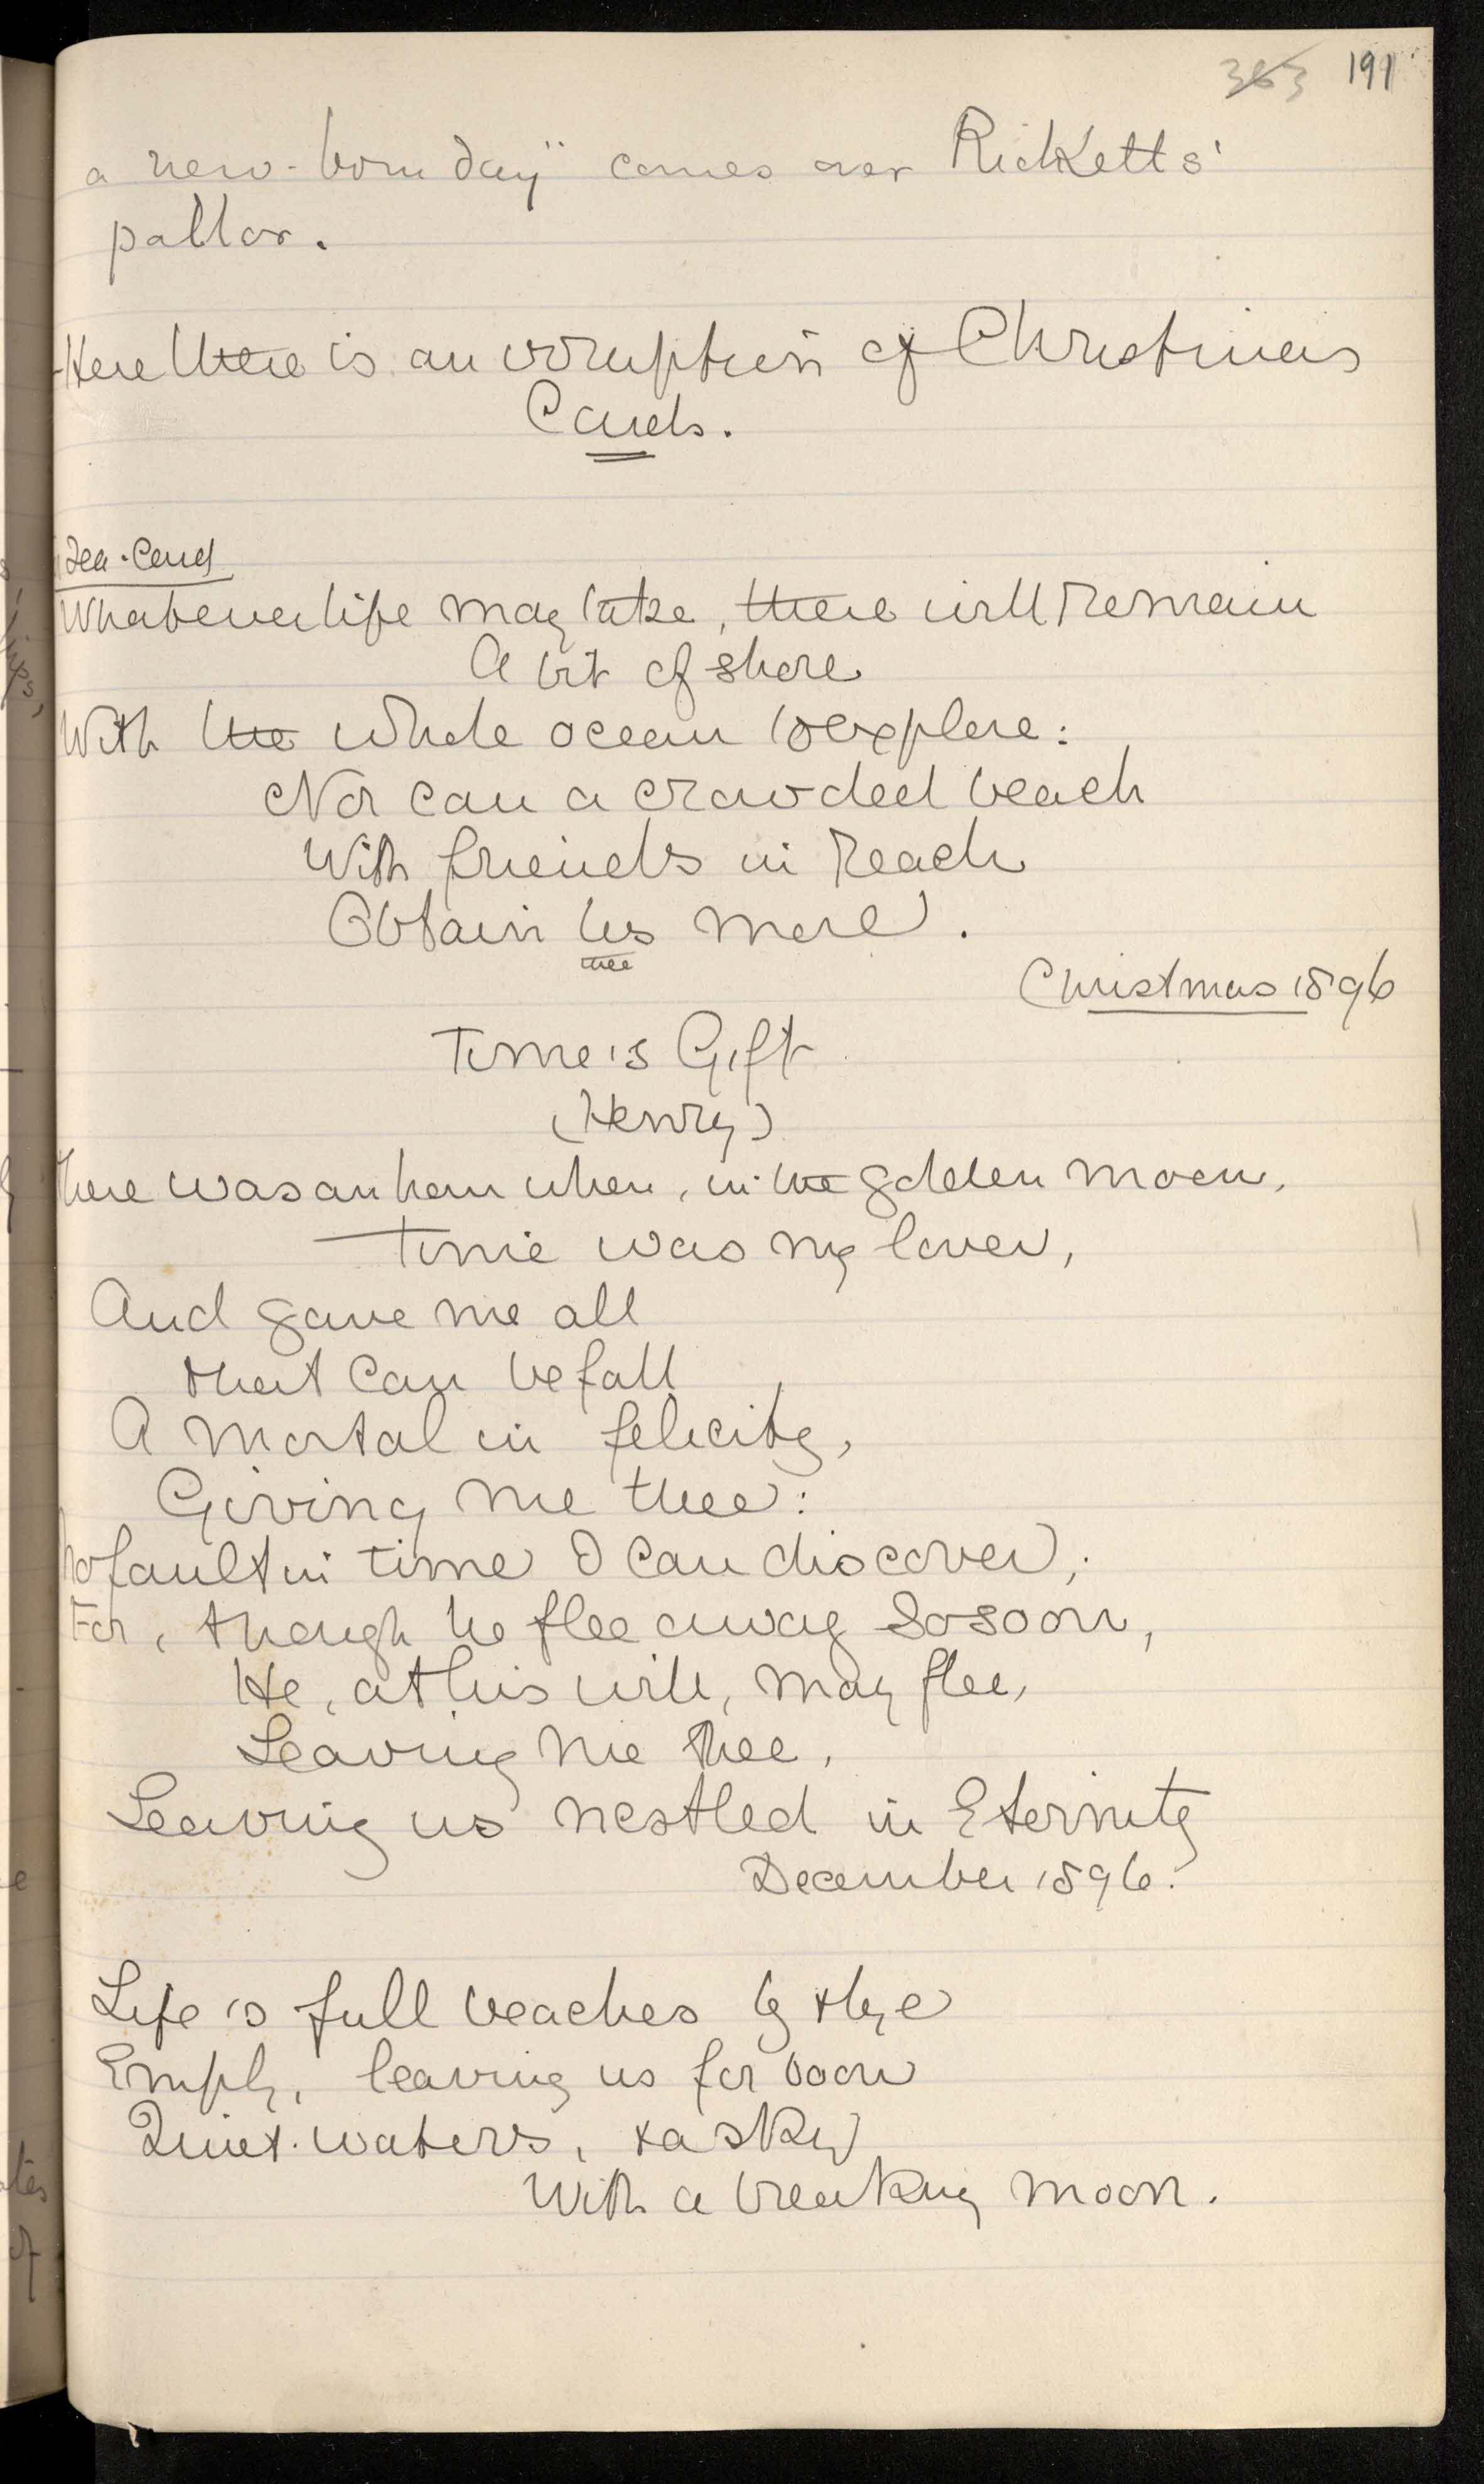 363 191
a new-born day" comes over Ricketts'
pallor.
Here there is an irruption of Christmas
Cards.
Sea-Card
Whatever life may take, there will remain
A bit of shore
With the whole ocean to explore:
Nor can a crowded beach
With friends in reach
Obtain us more.
thee
Christmas 1896
Time's Gift
(Henry)
There was an hour when, in the golden moon,
Time was my lover,
And gave me all
that can befall
A mortal in felicity,
Giving me thee:
No fault in time I can discover,
For, though he flee away so soon,
He, at his will, may flee,
Leaving me thee,
Leaving us nestled in Eternity
December 1896.
Life is full beaches by &
Empty, leaving us for boon
Quiet waters, & a sky
With a breaking moon.